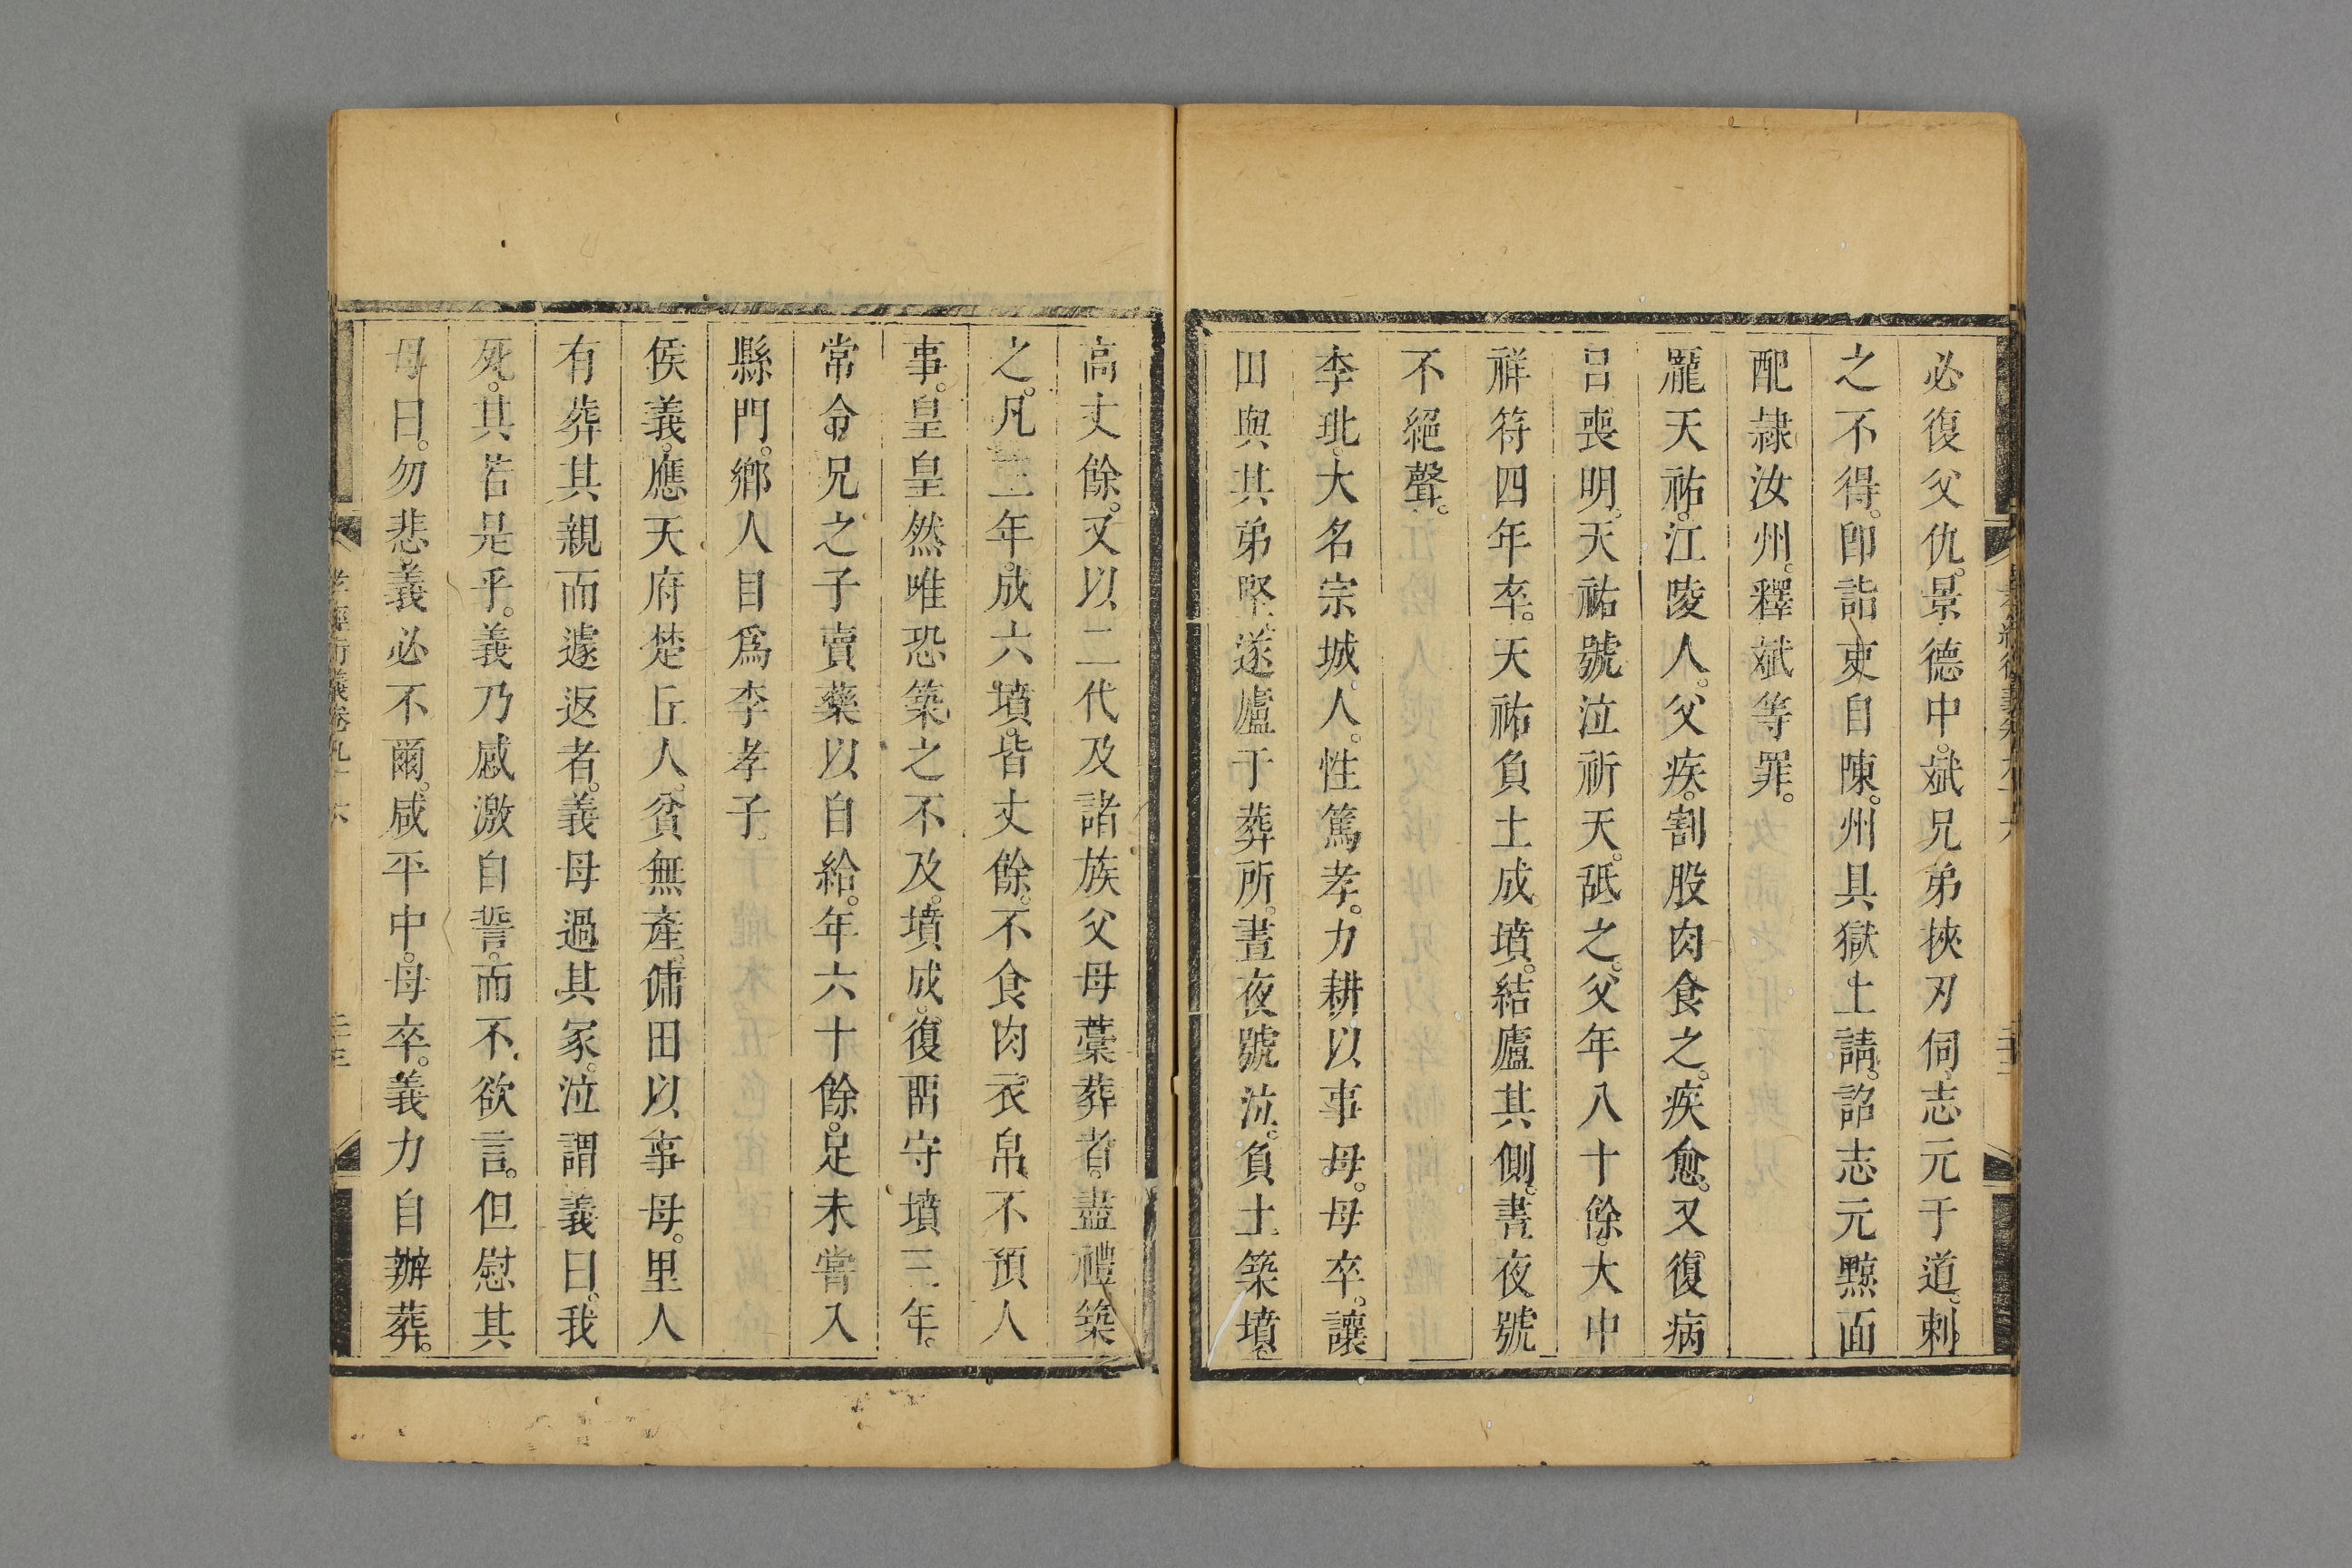 必復父仇。景德中。斌兄弟挾刃伺志元于道。刺
之不得。卽詣吏自陳。州具獄上請。詔志元黥面
配隷汝州。釋斌等罪。
龎天祐。江陵人。父疾。割股肉食之。疾愈。又復病
目喪明。天祐號泣祈天。䑛之。父年八十餘。大中
祥符四年卒。天祐負土成墳。結廬其側。晝夜號
不絕聲。
李玭。大名宗城人。性篤孝。力耕以事母。母卒。讓
田與其弟堅。遂廬于葬所。晝夜號泣。負土築墳。
高丈餘。又以二代及諸族父母藁葬者。盡禮築
之。凡三年。成六墳。皆丈餘。不食肉衣帛。不預人
事。皇皇然唯恐築之不及。墳成。復留守墳三年。
常令兄之子賣藥以自給。年六十餘。足未嘗入
縣門。鄉人目爲李孝子。
侯義。應天府楚丘人。貧無產。傭田以事母。里人
有葬其親而遽返者。義母過其冢。泣謂義曰。我
死。其若是乎。義乃感激自誓。而不欲言。但慰其
母曰。勿悲。義必不爾。咸平中。母卒。義力自辦葬。
孝經衍義卷九十六